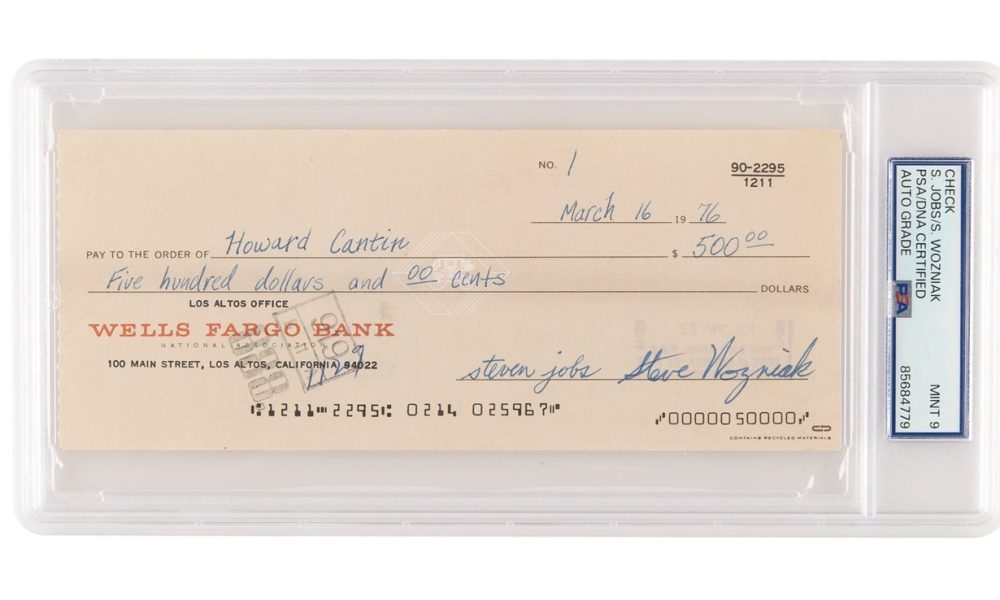 NO. 1
90-2295
1211
March 16 1976
PAY TO THE ORDER OF Howard Cantin $ 500 00
Five hundred dollars and 00 cents DOLLARS
LOS ALTOS OFFICE
WELLS FARGO BANK
NATIONAL ASSOCIATION
100 MAIN STREET, LOS ALTOS, CALIFORNIA 94022
steven jobs Steve Wozniak
⑆1211⑉2295⑆ 0214 025967⑈
⑈00000 50000⑈
CONTAINS RECYCLED MATERIALS
CHECK
S. JOBS/S. WOZNIAK
PSA/DNA CERTIFIED
AUTO GRADE
MINT 9
PSA
85684779